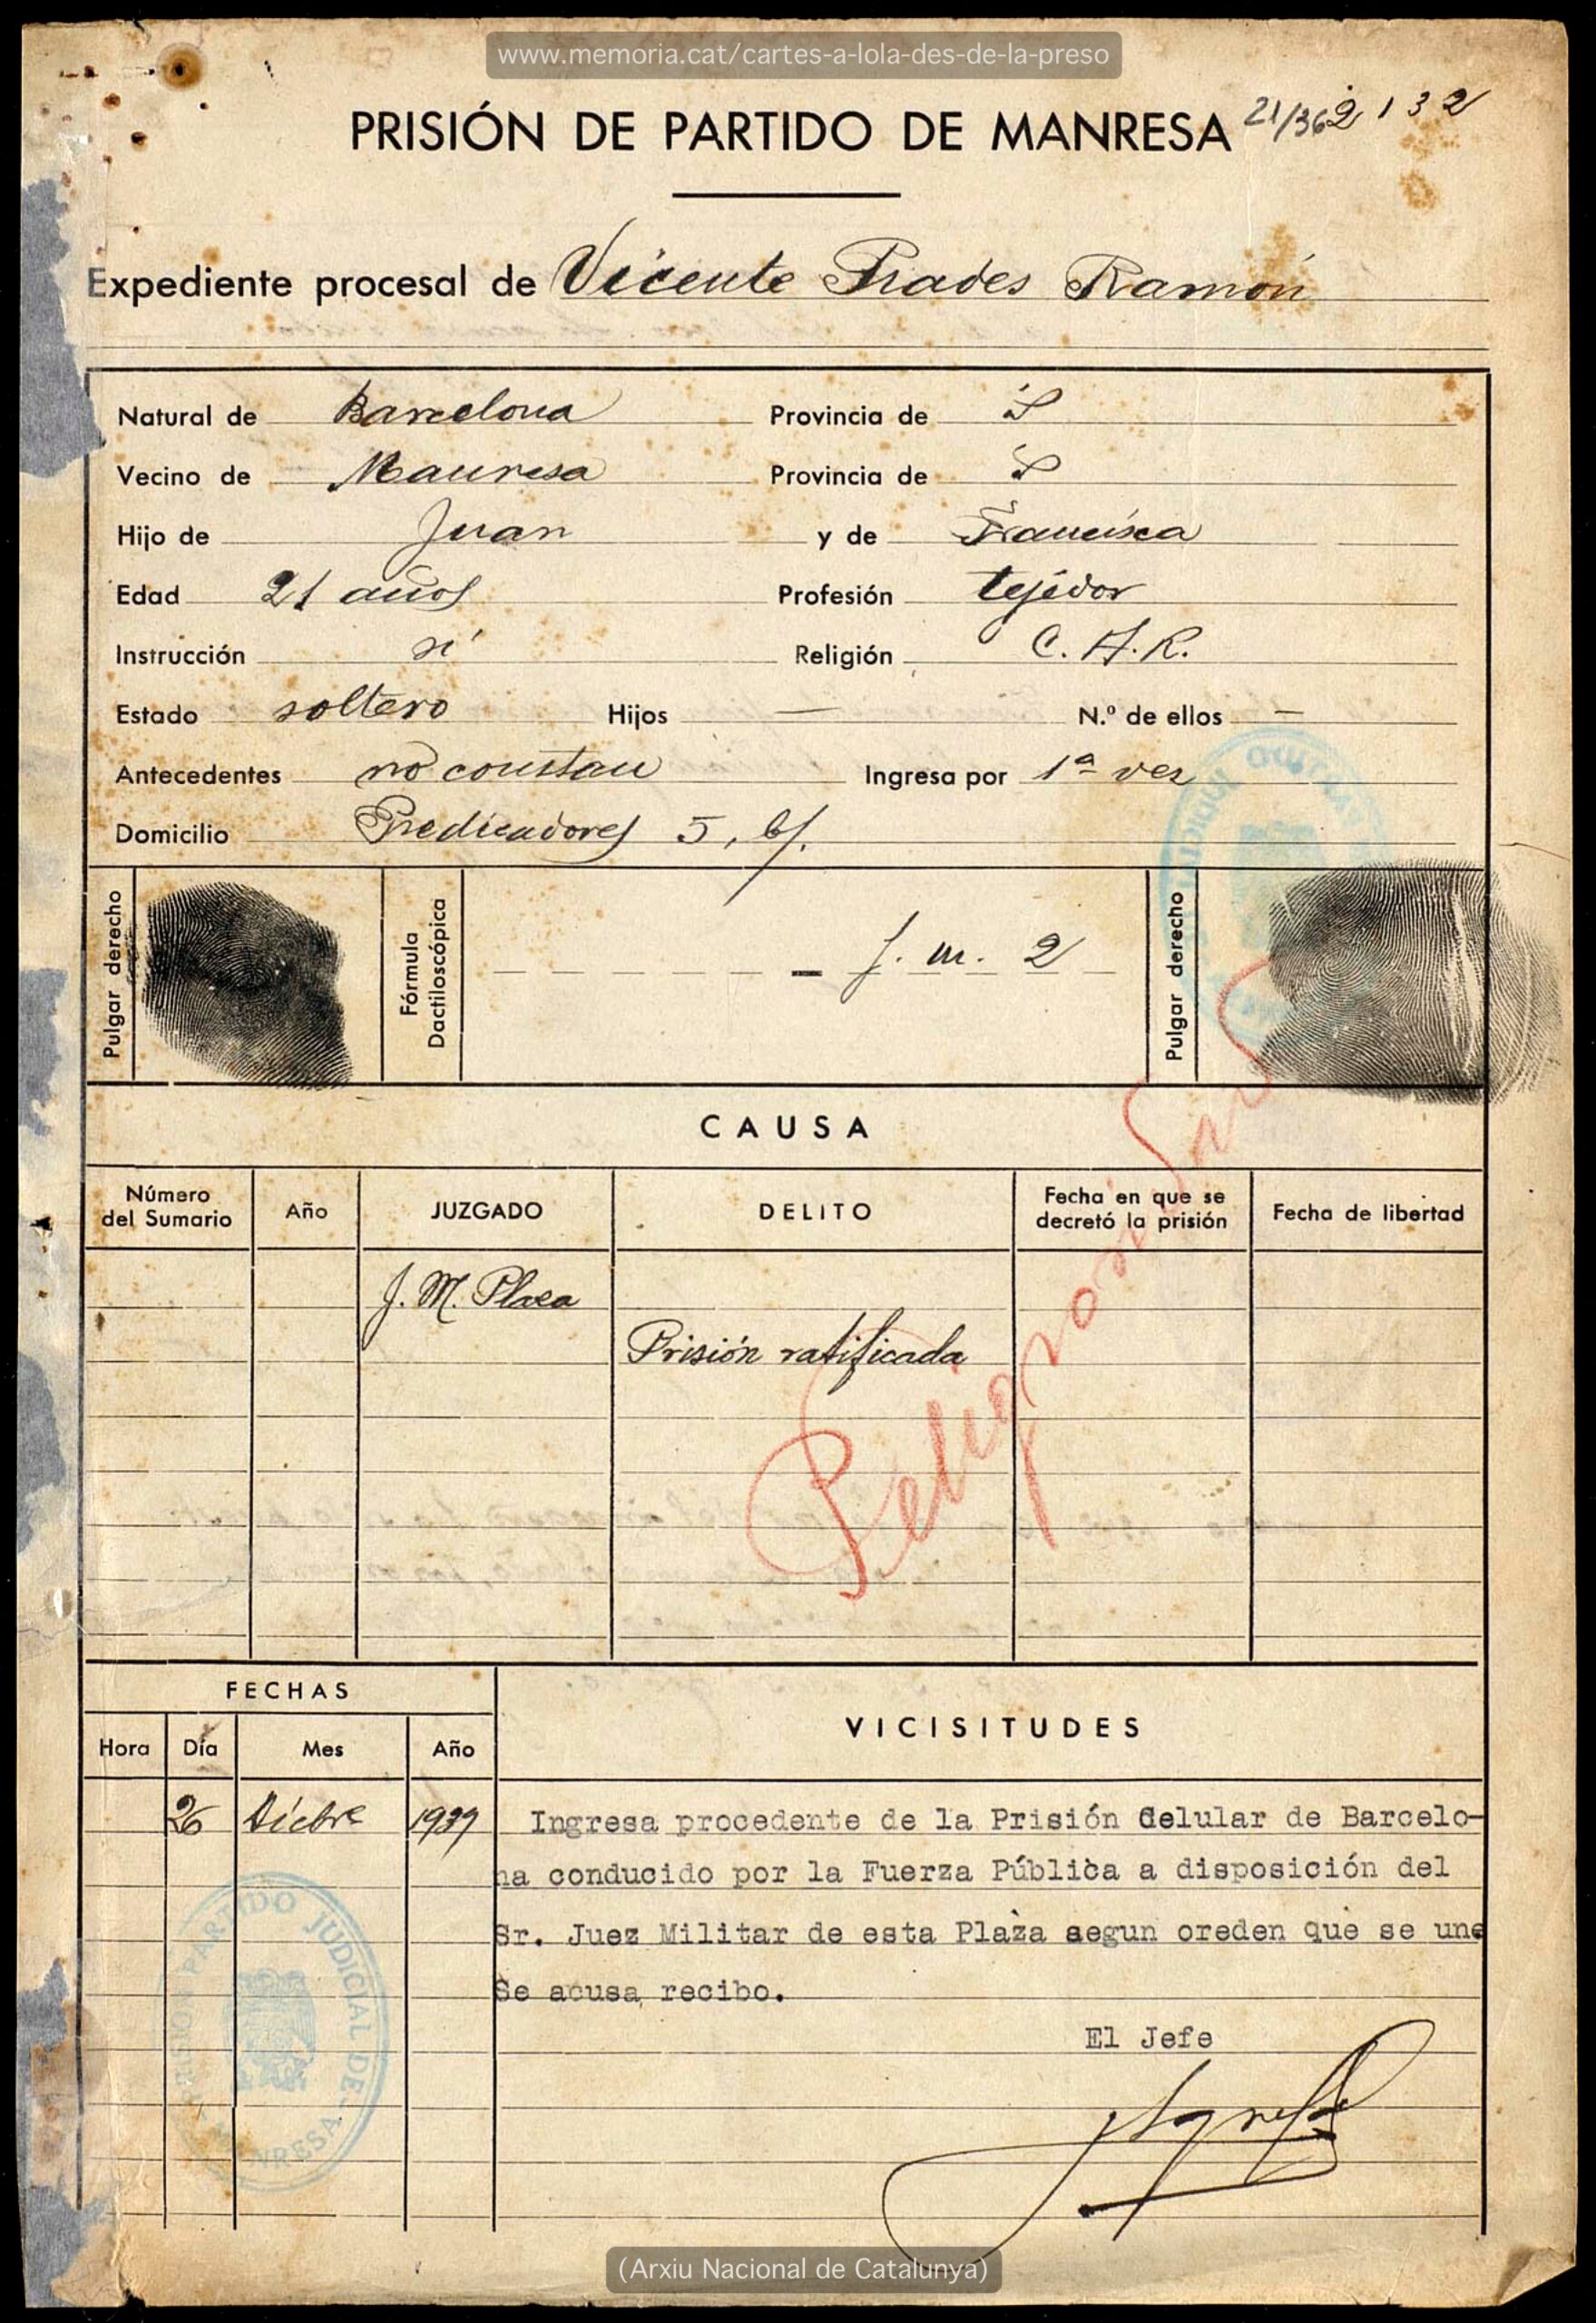 www.memoria.cat/cartes-a-lola-des-de-la-preso
PRISIÓN DE PARTIDO DE MANRESA 21/36 2132
Expediente procesal de Vicente Prades Ramón
Natural de Barcelona Provincia de
Vecino de Manresa Provincia de
Hijo de Juan y de Francisca
Edad 21 años Profesión tejedor
Instrucción si Religión C. A. R.
Estado soltero Hijos — N.º de ellos —
Antecedentes no constan Ingresa por 1ª vez
Domicilio Predicadores 5, b/.
Pulgar derecho Fórmula Dactiloscópica J. m. 2 Pulgar derecho
CAUSA
Número del Sumario Año JUZGADO DELITO Fecha en que se decretó la prisión Fecha de libertad
J. M. Plaza
Prisión ratificada
FECHAS
VICISITUDES
Hora Día Mes Año
26 Dicbre 1939 Ingresa procedente de la Prisión Celular de Barcelo-
na conducido por la Fuerza Pública a disposición del
Sr. Juez Militar de esta Plaza segun oreden que se une
Se acusa recibo.
El Jefe
PRISION PARTIDO JUDICIAL DE MANRESA
(Arxiu Nacional de Catalunya)